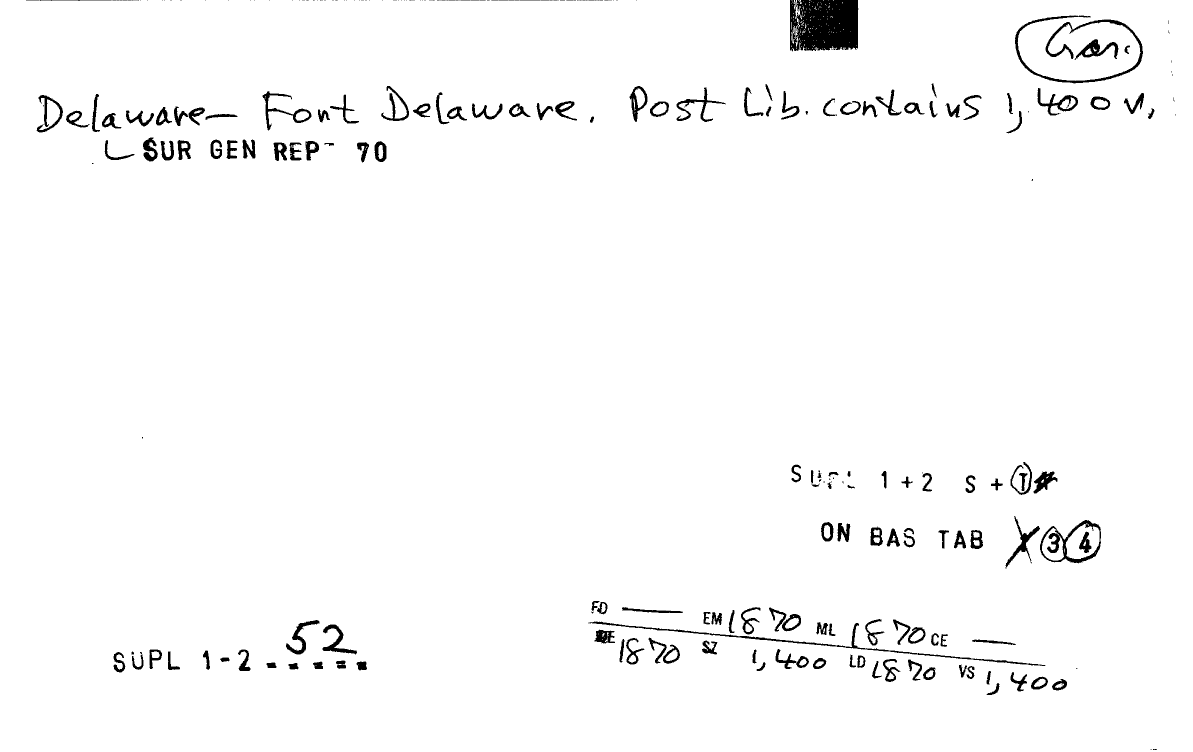 Gar.
Delaware— Font Delaware. Post Lib. contains 1,400 v,
SUR GEN REP- 70
SUPL 1+2 S + T
ON BAS TAB 3 4
FD — EM 1870 ML 1870 CE —
DE 1870 SZ 1,400 LD 1870 VS 1,400
SUPL 1-2 . 52